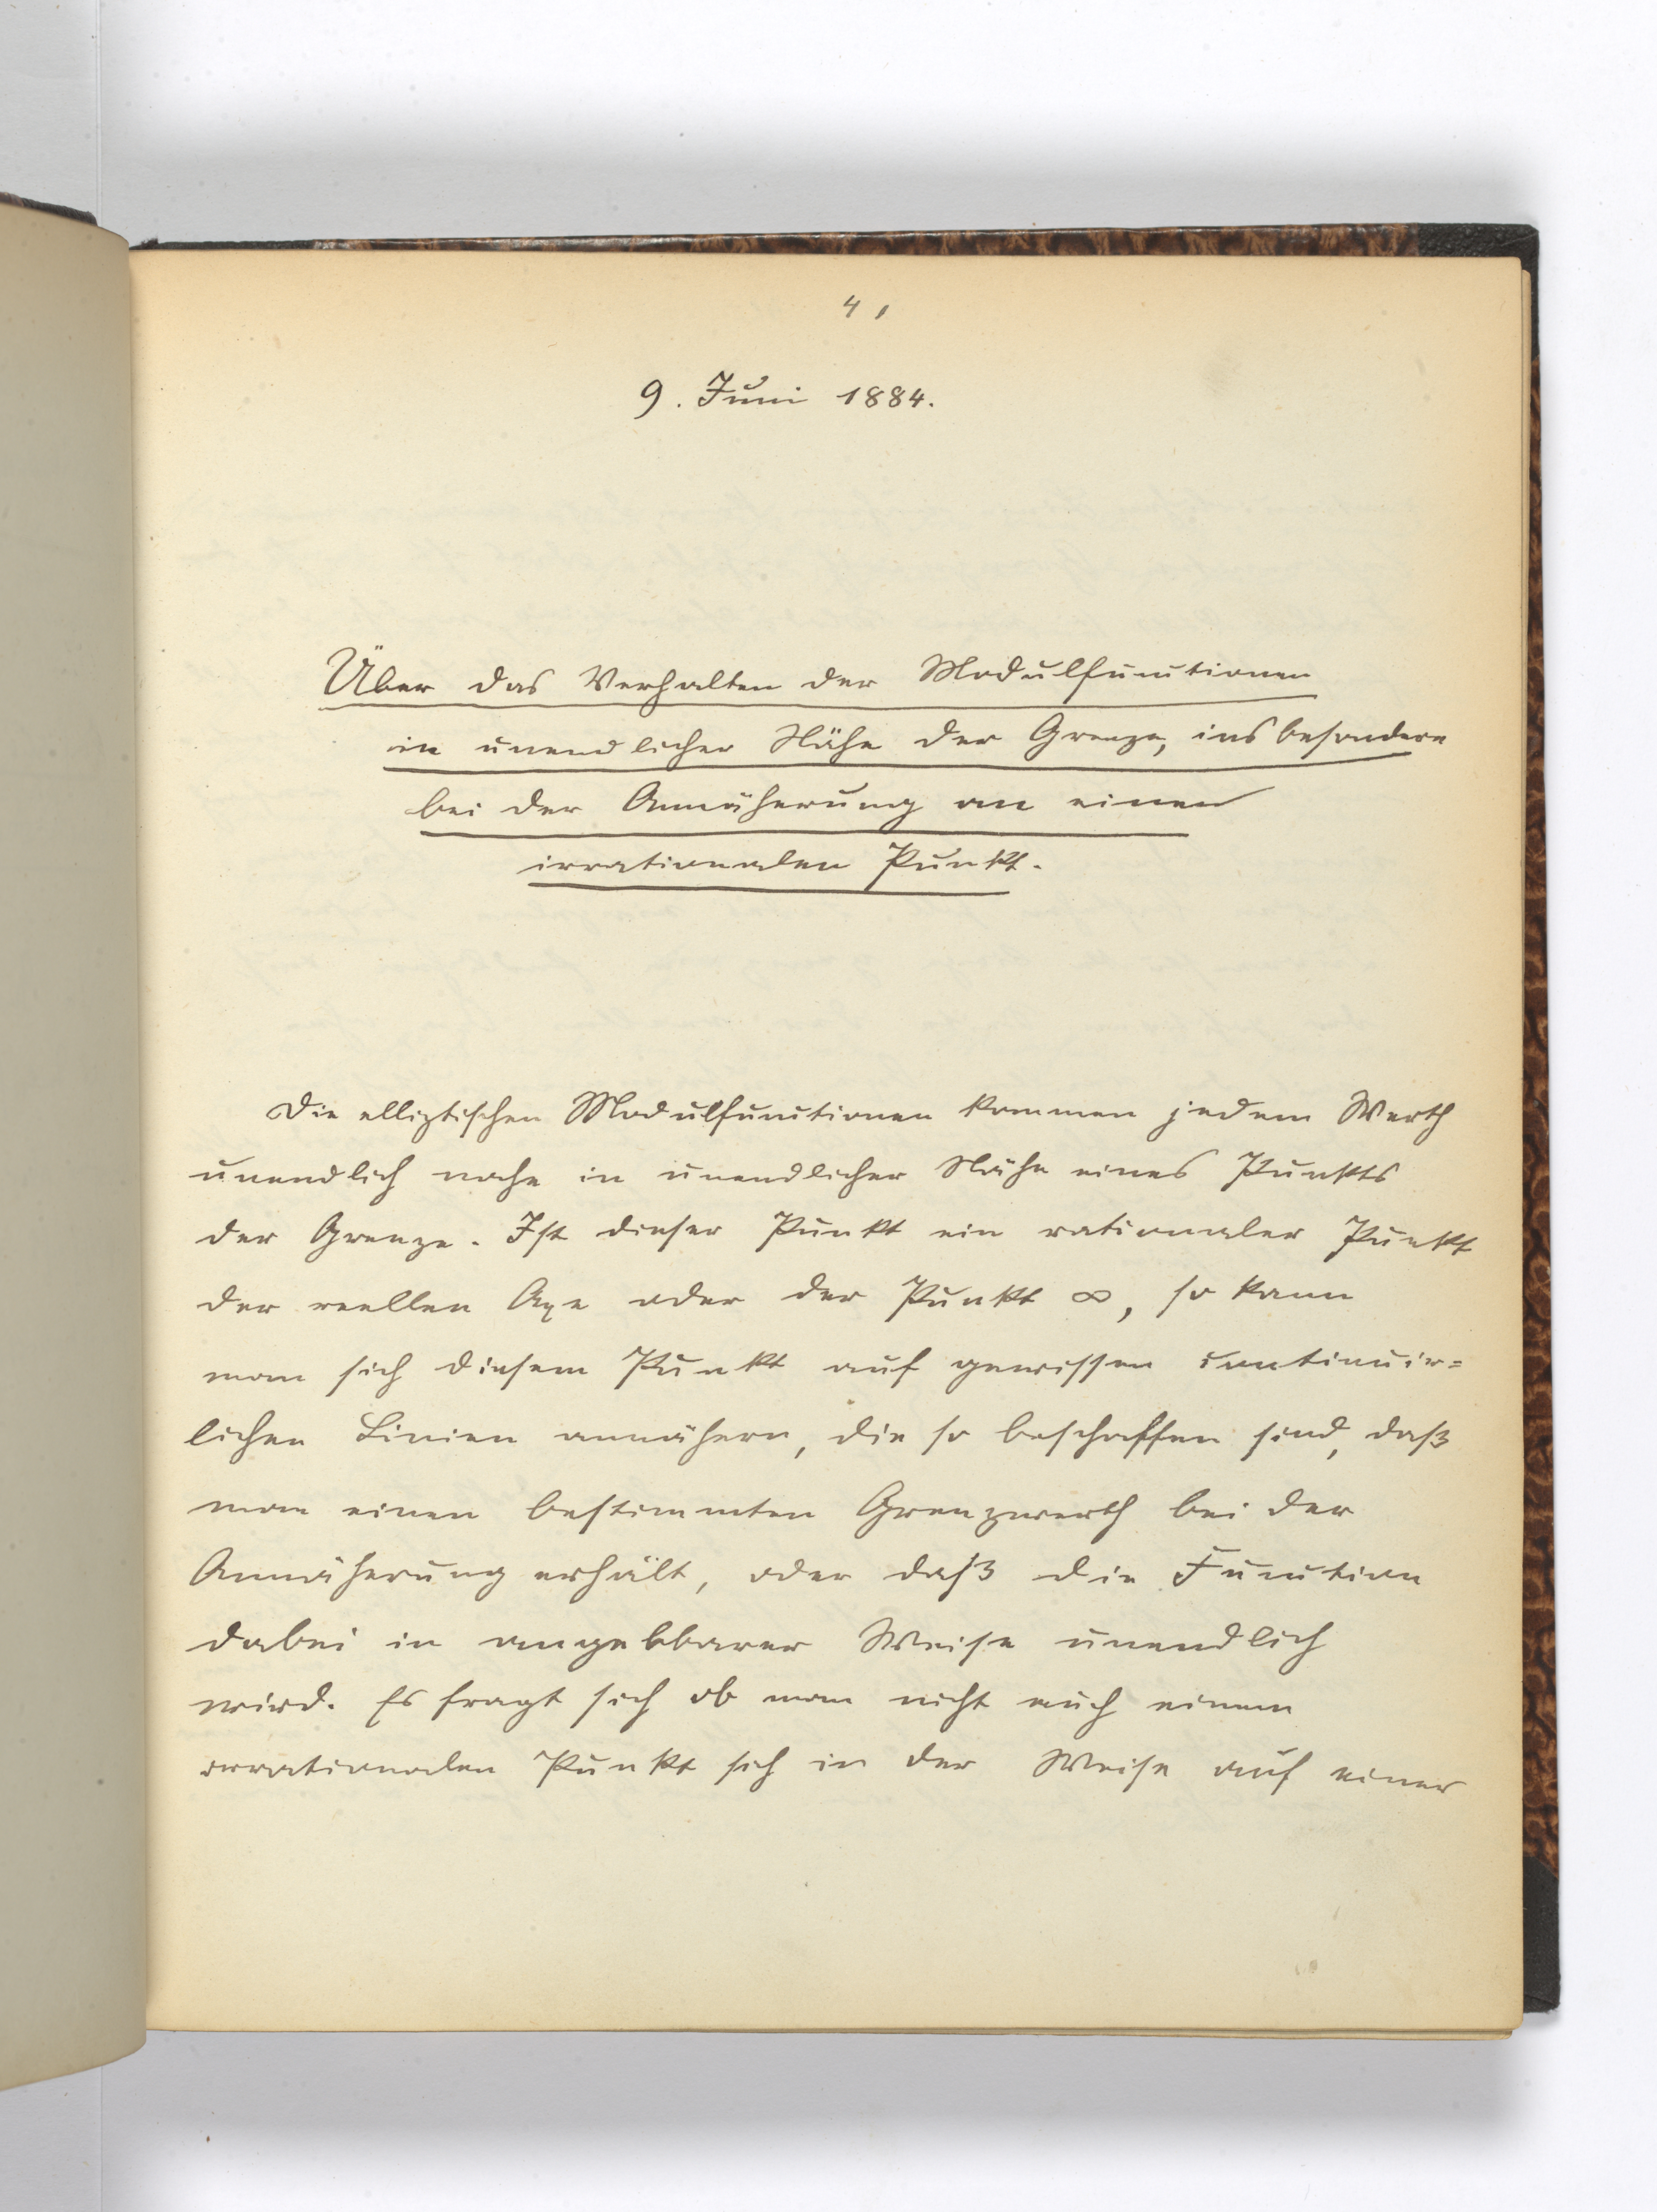 41
9. Juni 1884.
Über das Verhalten der Modulfunctionen
in unendlicher Nähe der Grenze, insbesondere
bei der Annäherung an einen
irrationalen Punkt.
Die elliptischen Modulfunctionen kommen jedem Werth
unendlich nahe in unendlicher Nähe eines Punkts
der Grenze. Ist dieser Punkt ein rationaler Punkt
der reellen Axe oder der Punkt ∞, so kann
man sich diesem Punkt auf gewissen continuir=
lichen Linien annähern, die so beschaffen sind, daß
man einen bestimmten Grenzwerth bei der
Annäherung erhält, oder daß die Function
dabei in angebbarer Weise unendlich
wird. Es fragt sich ob man nicht auch einem
irrationalen Punkt sich in der Weise auf einer